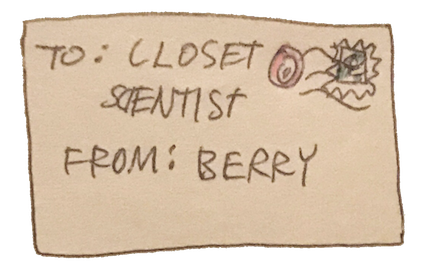 TO: CLOSET
SCIENTIST
FROM: BERRY